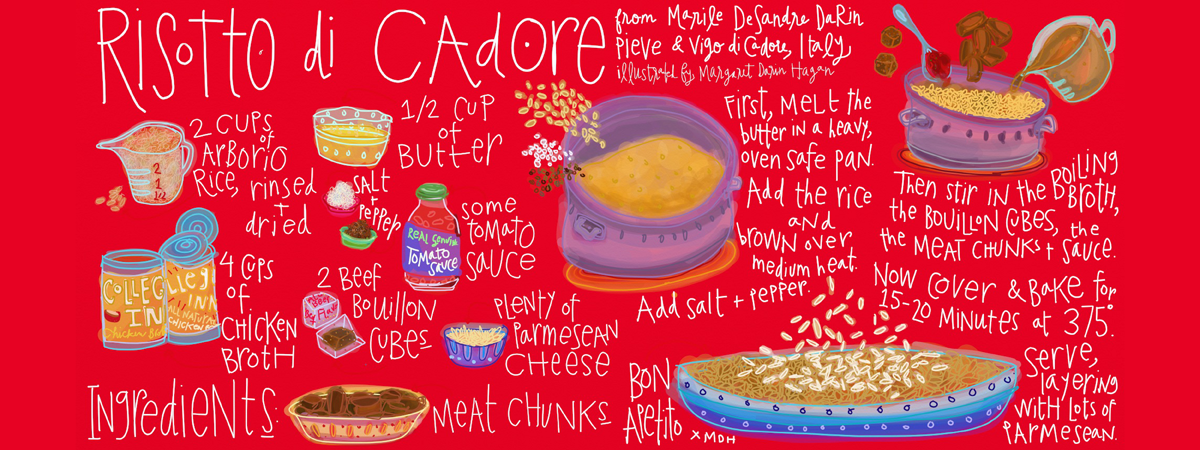 Risotto di Cadore
from Marile DeSandre DaRin
Pieve & Vigo di Cadore, Italy
illustrated by Margaret Darin Hagan
2 cups
of
Arborio
Rice, rinsed
dried
2
1
1/2
1/2 cup
of
Butter
Salt
+
Pepper
Real Genuine
Tomato
Sauce
some
tomato
sauce
4 cups
of
Chicken
Broth
College
Inn
Chicken Broth
All Natural
Chicken
2 Beef
Bouillon
Cubes
Beef
Plenty of
Parmesean
Cheese
Ingredients:
Meat Chunks
First, melt the
butter in a heavy,
oven safe pan.
Add the rice
and
brown over
medium heat.
Add salt + pepper.
Then stir in the boiling
broth,
the bouillon cubes, the
the meat chunks + sauce.
Now cover & bake for
15-20 minutes at 375°.
Serve,
layering
with lots of
Parmesean.
Bon
Apetito
x MDH